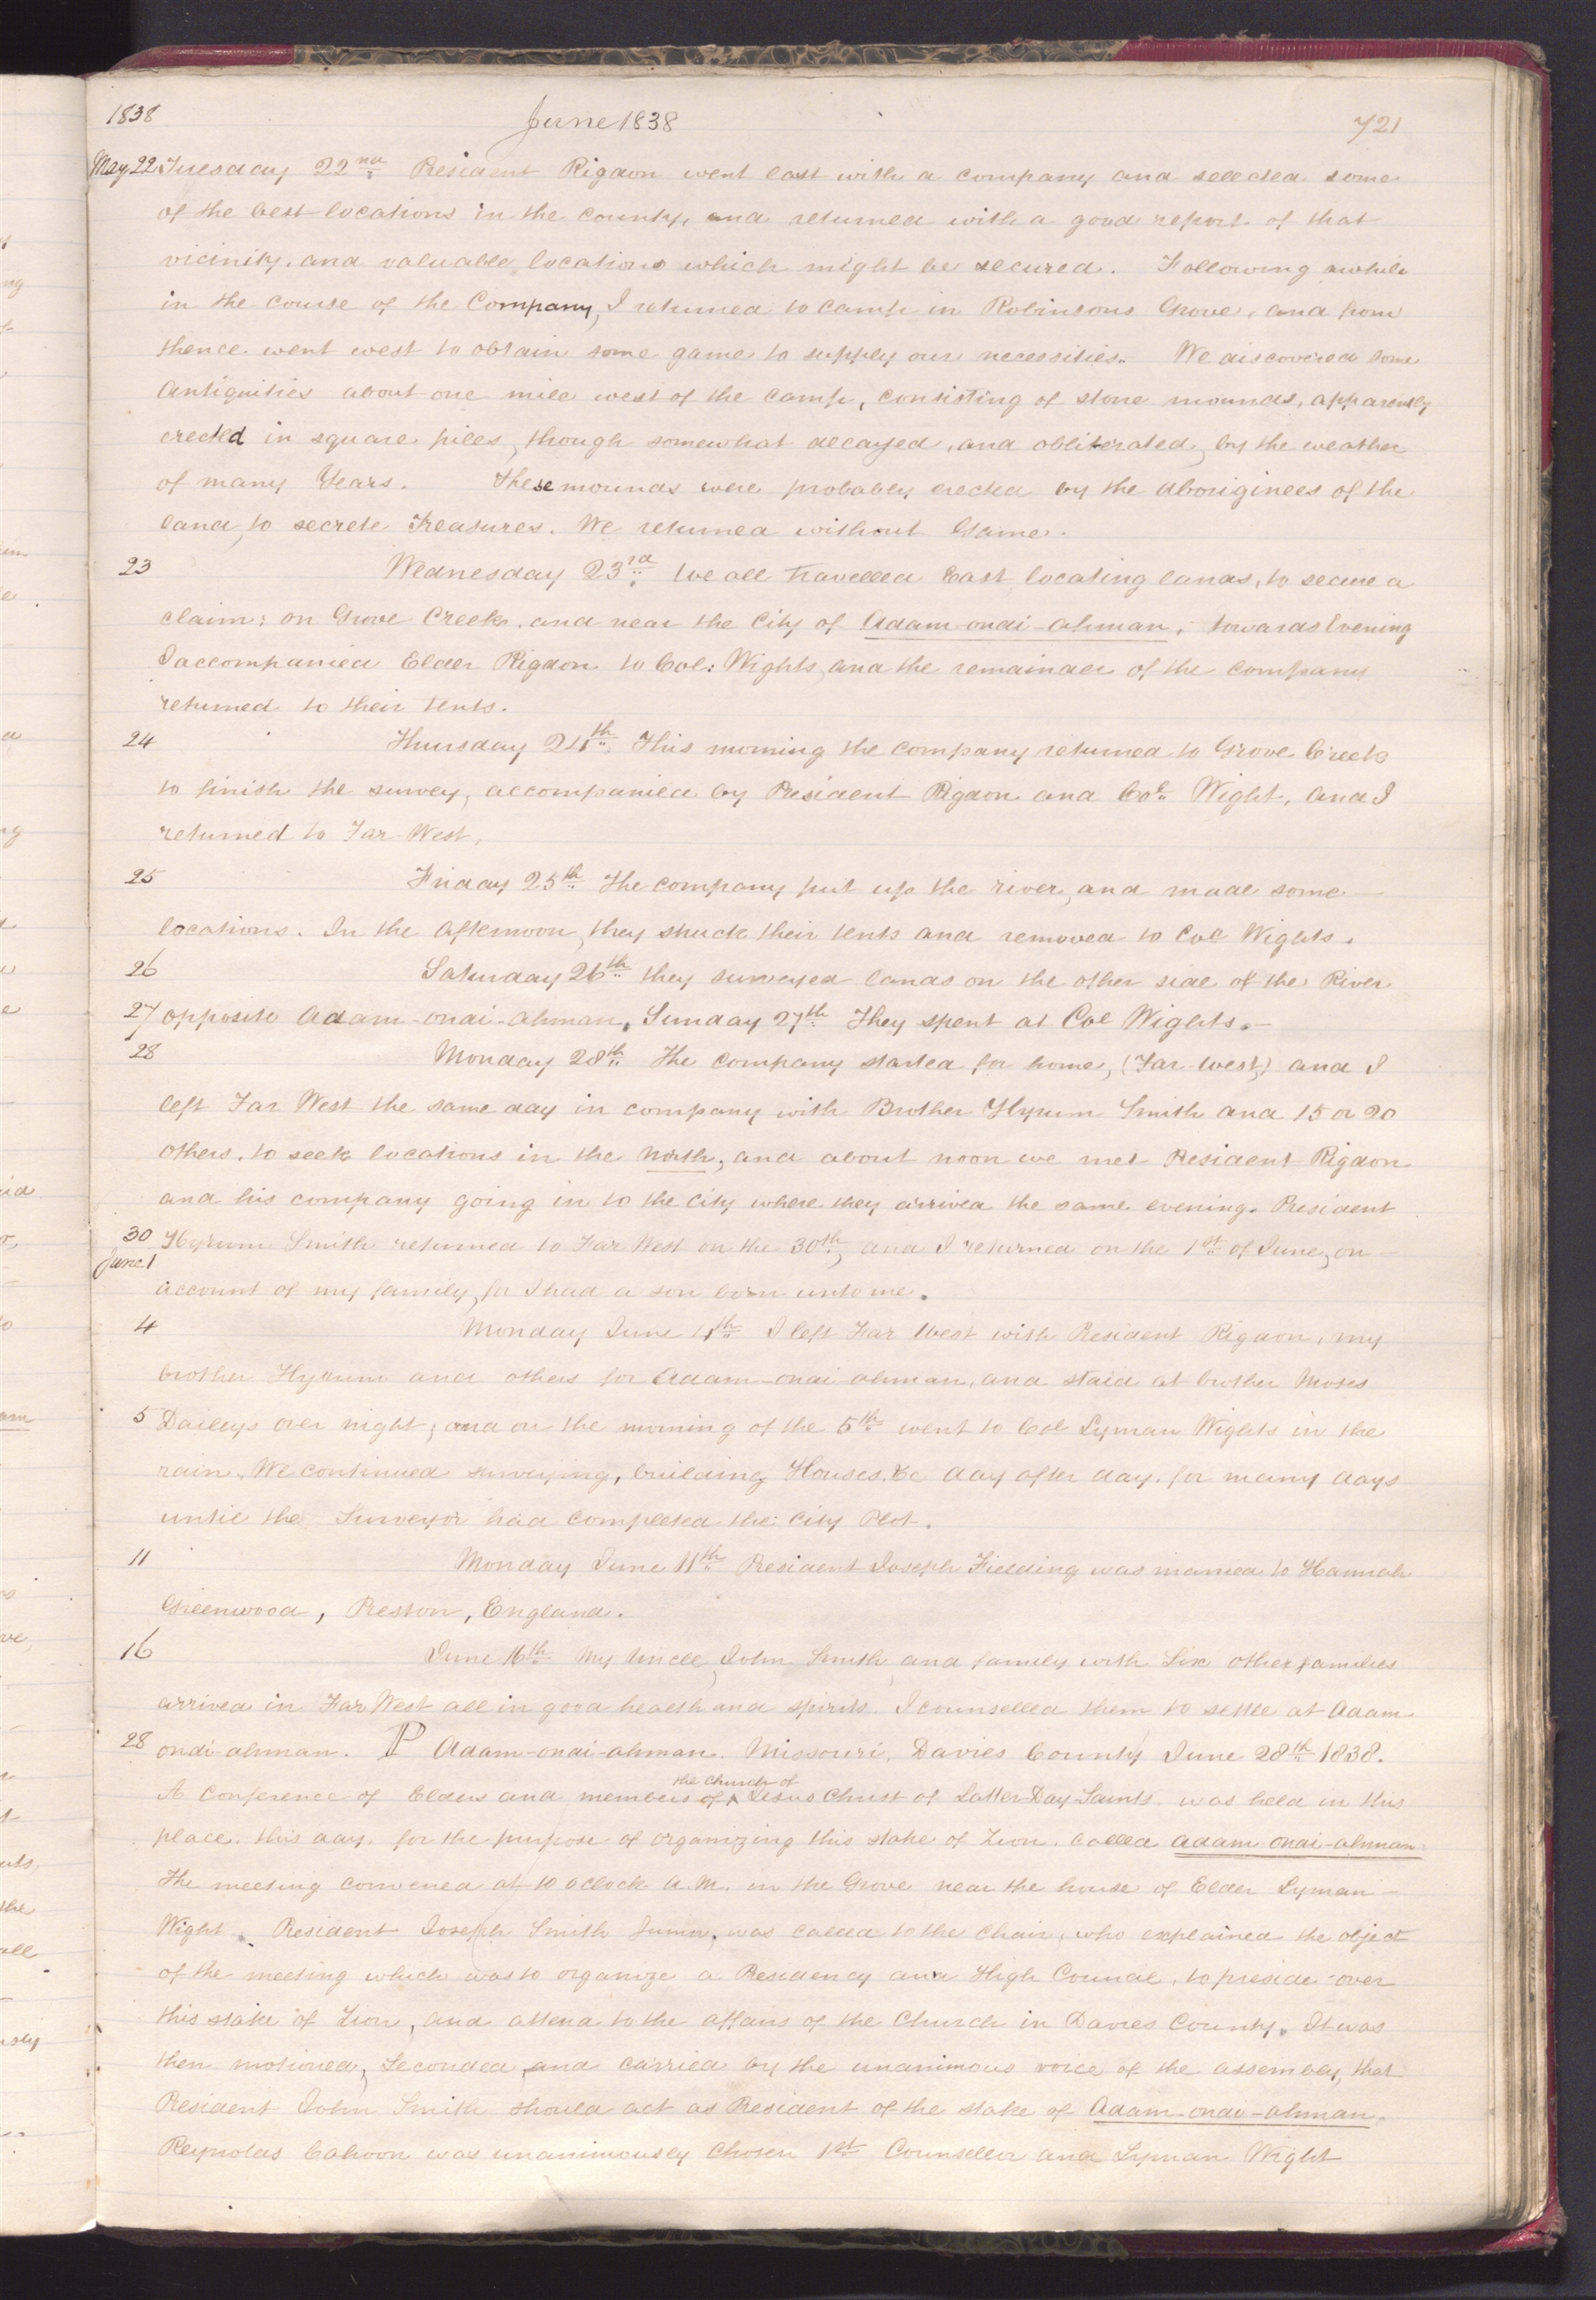 1838 June 1838 721
May 22 Tuesday 22nd President Rigdon went east with a company and selected some
of the best locations in the county, and returned with a good report of that
vicinity, and valuable locations which might be secured. Following awhile
in the course of the Company, I returned to camp in Robinsons Grove, and from
thence went west to obtain some game to supply our necessities. We discovered some
antiquities about one mile west of the camp, consisting of stone mounds, apparently
erected in square piles, though somewhat decayed, and obliterated, by the weather
of many Years. These mounds were probably erected by the aboriginees of the
land, to secrete Treasures. We returned without Game.
23 Wednesday 23rd We all travelled East, locating lands, to secure a
claim: on Grove Creek, and near the City of Adam-ondi-ahman, towards Evening
I accompanied Elder Rigdon to Col: Wights, and the remainder of the company
returned to their tents.
24 Thursday 24th This morning the company returned to Grove Creek
to finish the survey, accompanied by President Rigdon and Col. Wight, and I
returned to Far-West.
25 Friday 25th The company put up the river, and made some
locations. In the afternoon, they struck their tents and removed to Col Wights.
26 Saturday 26th they surveyed lands on the other side of the River
27 opposite Adam-ondi-ahman, Sunday 27th They spent at Col Wights.
28 Monday 28th The company started for home, (Far-west,) and I
left Far West the same day in company with Brother Hyrum Smith and 15 or 20
others, to seek locations in the north, and about noon we met President Rigdon
and his company going in to the city where they arrived the same evening. President
30 Hyrum Smith returned to Far West on the 30th, and I returned on the 1st of June, on
June 1
account of my family, for I had a son born unto me.
4 Monday June 4th I left Far West with President Rigdon, my
brother Hyrum and others for Adam-ondi-ahman, and staid at brother Moses
5 Daileys over night; and on the morning of the 5th went to Col Lyman Wights in the
rain. We continued surveying, building Houses, &c day after day, for many days
until the Surveyor had completed the City Plot.
11 Monday June 11th President Joseph Fielding was married to Hannah
Greenwood, Preston, England.
16 June 16th My Uncle, John Smith, and family with Six other families
arrived in Far West all in good health and spirits. I counselled them to settle at Adam
28 ondi-ahman. P Adam-ondi-ahman. Missouri, Davies County June 28th 1838.
the church of
A Conference of Elders and members of ^ Jesus Christ of Latter Day Saints was held in this
place, this day, for the purpose of organizing this stake of Zion, called Adam ondi-ahman
The meeting convened at 10 oclock A.M. in the Grove near the house of Elder Lyman
Wight. President Joseph Smith Junior, was called to the chair, who explained the object
of the meeting which was to organize a Presidency and High Council, to preside over
this stake of Zion, and attend to the affairs of the Church in Davies County. It was
then motioned, Seconded, and carried by the unanimous voice of the assembly, that
President John Smith should act as President of the stake of Adam-ondi-ahman.
Reynolds Cahoon was unanimously chosen 1st Counsellor and Lyman Wight